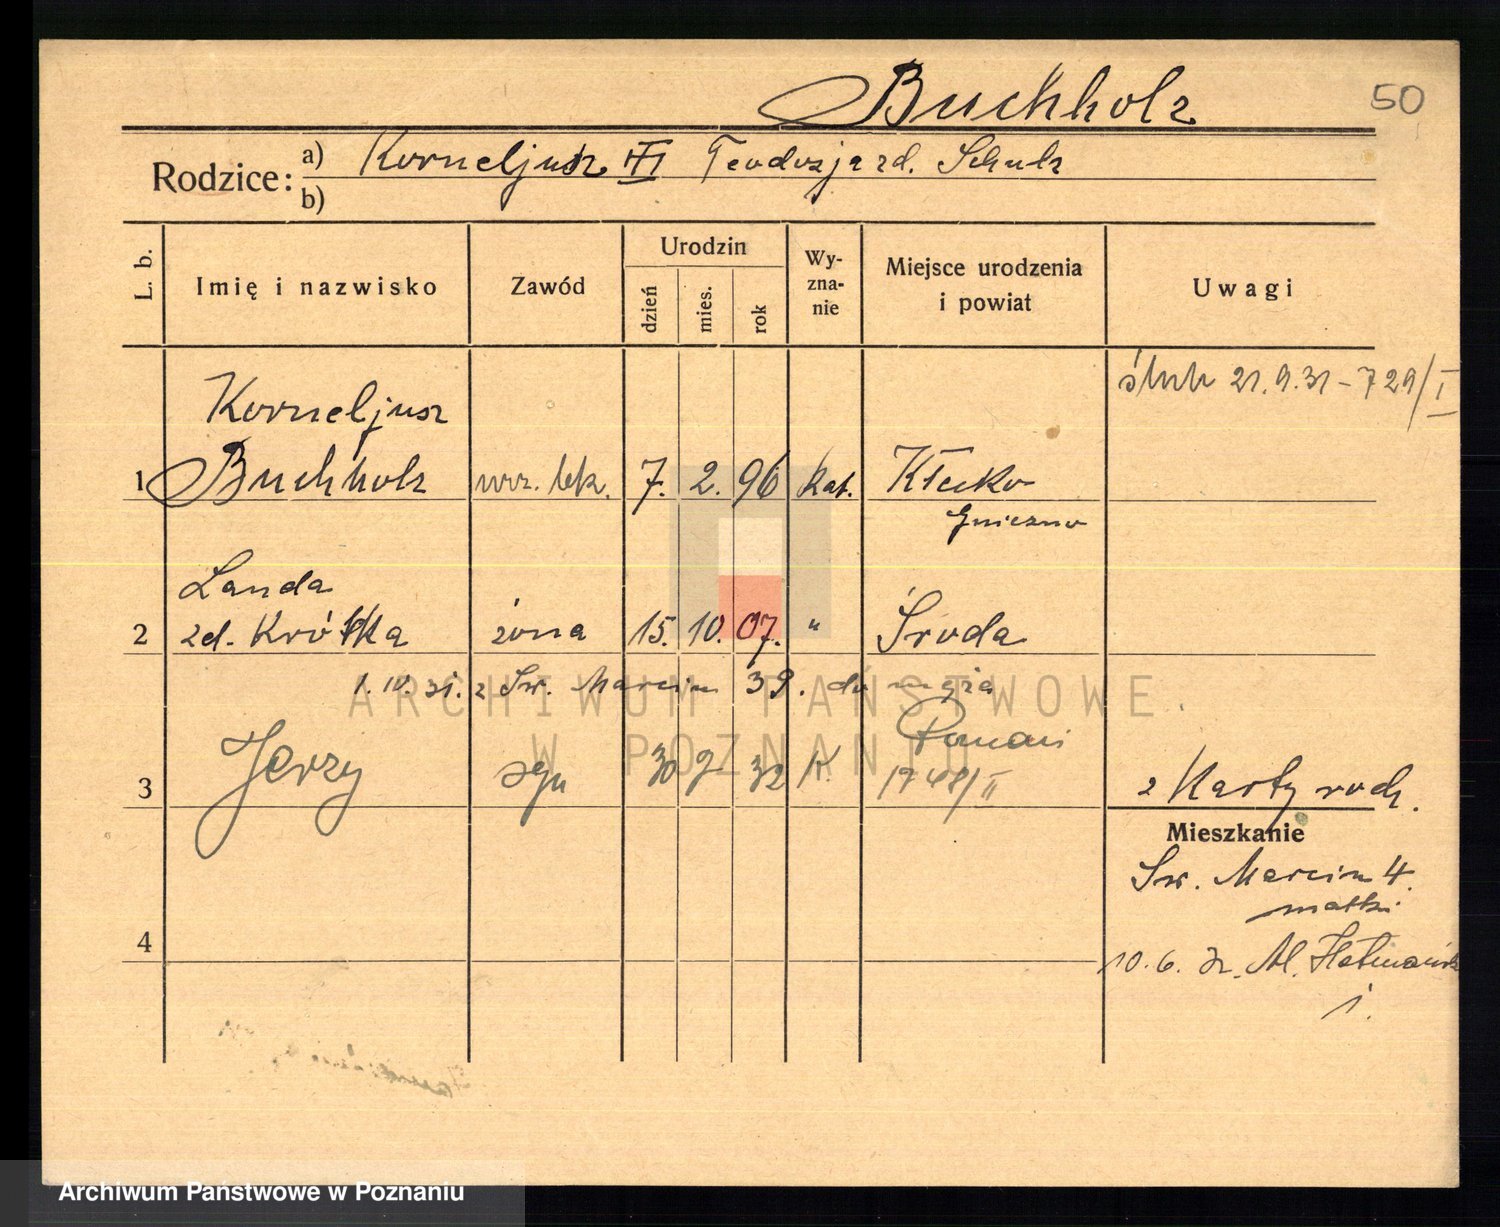 Buchholz
50
Rodzice:
a) Korneljusz III Teodozja zd. Schulz
b)
L. b.
Imię i nazwisko
Zawód
Urodzin
dzień
mies.
rok
Wy-
zna-
nie
Miejsce urodzenia
i powiat
Uwagi
ślub 21.9.31 - 729/I
Korneljusz
1 Buchholz urz. 7. 2. 96 kat. Kłecko
Gniezno
Landa
2 zd. Krótka żona 15. 10. 07. " Środa
1. IV. 31. z Św. Marcin 39. do męża
Poznań
3 Jerzy syn 30 32 K. 1748/II z Karty rodz.
Mieszkanie
Św. Marcin 4.
matki
4
10. 6. 32. Al. Hetmańsk
1.
ARCHIWUM PAŃSTWOWE
W POZNANIU
Archiwum Państwowe w Poznaniu